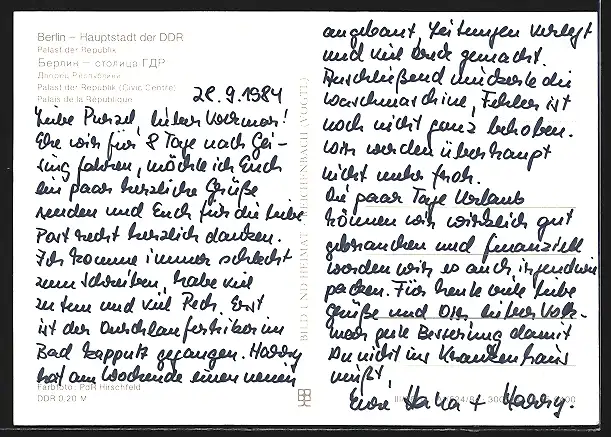 Berlin – Hauptstadt der DDR
Palast der Republik
Берлин – столица ГДР
Дворец Республики
Palast der Republik (Civic Centre)
Palais de la République
28.9.1984
Liebe Purzel, lieber Volkmar!
Ehe wir für 8 Tage nach Gei-
sing fahren, möchte ich Euch
ein paar herzliche Grüße
senden und Euch für die liebe
Post recht herzlich danken.
Ich komme immer schlecht
zum Schreiben, habe viel
zu tun und viel Pech. Erst
ist der Durchlauferhitzer im
Bad kaputt gegangen. Harry
hat am Wochende einen neuen
Farbfoto: PGH Hirschfeld
DDR 0,20 M
BILD UND HEIMAT · REICHENBACH (VOGTL)
angebaut, Leitungen verlegt
und viel Dreck gemacht.
Anschließend muckerte die
Waschmaschine, Fehler ist
noch nicht ganz behoben.
Wir werden überhaupt
nicht mehr froh.
Die paar Tage Urlaub
können wir wirklich gut
gebrauchen und finanziell
werden wir es auch irgendwie
packen. Für heute viele liebe
Grüße und Dir lieber Volk-
mar gute Besserung damit
Du nicht ins Krankenhaus
mußt,
Eure + Harry.